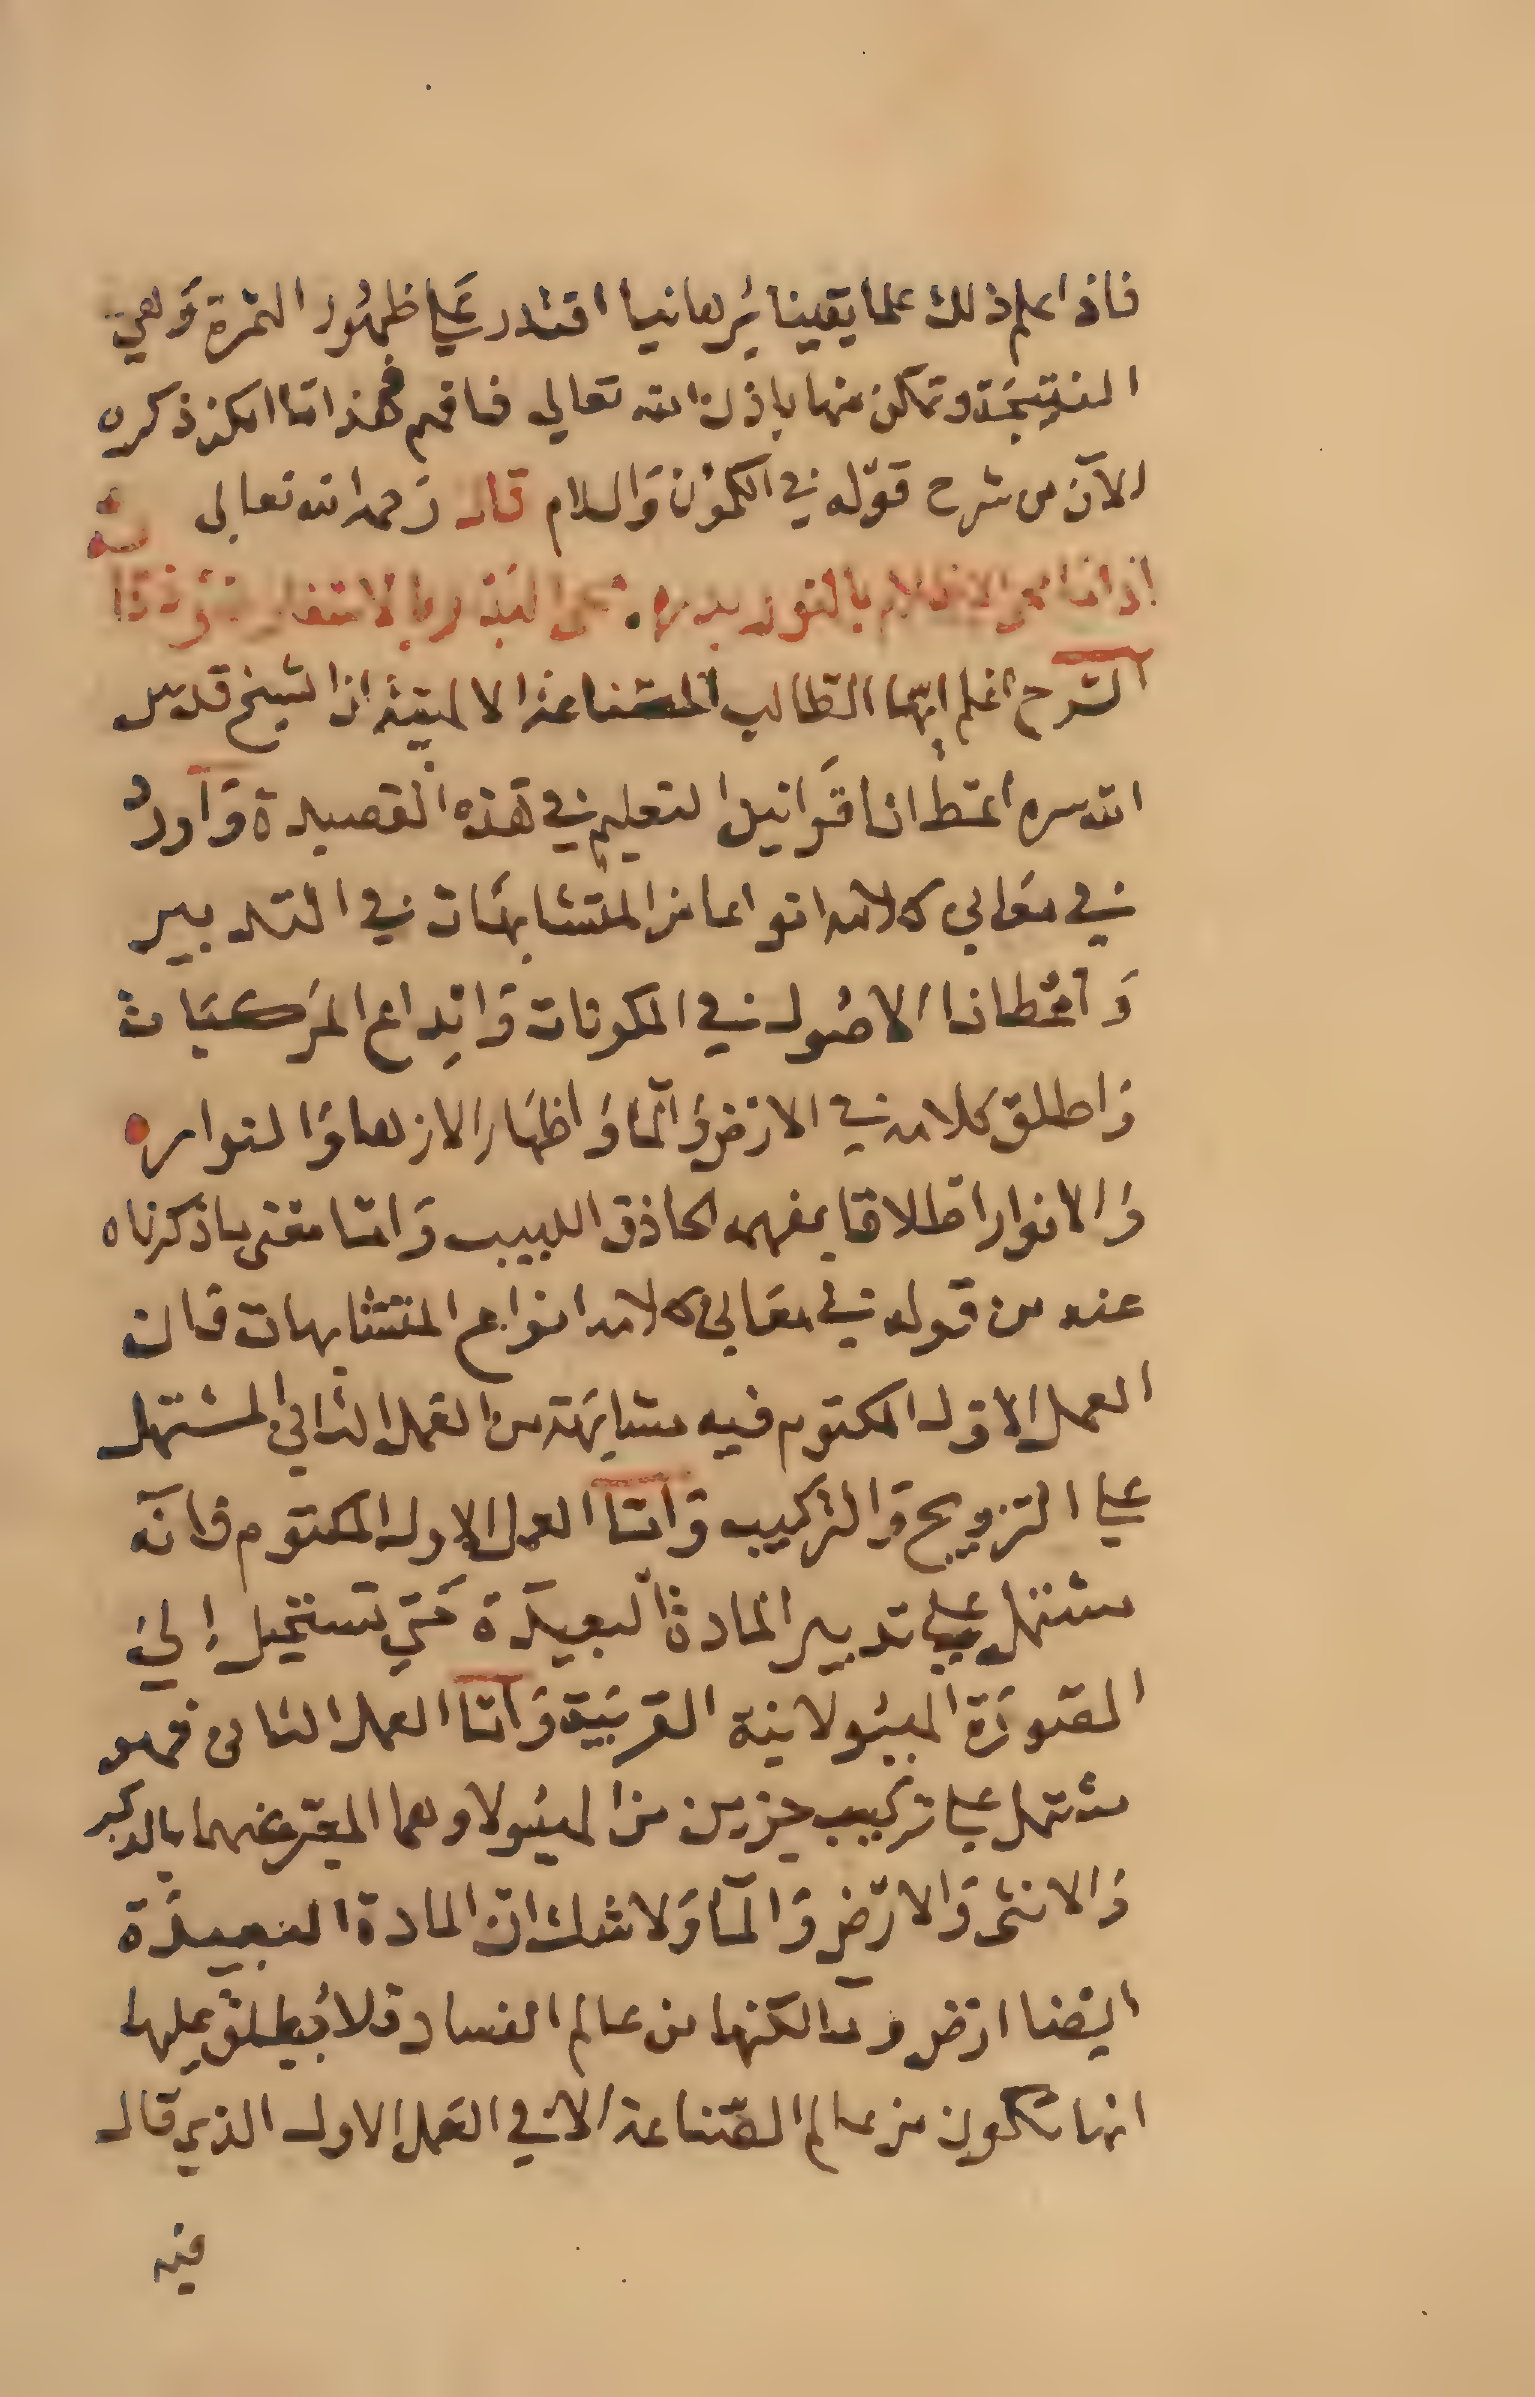 فاذا علم ذلك علما يقينا برهانيا اقتدر علي ظهور الثمرة وهي
النتيجة وتمكن منها باذن الله تعالي فافهم فهذا ما امكن ذكره
الآن من شرح قوله في الكمون والسلام قال رحمه الله تعالى
اذا الاظلام بالنور بدره
الشرح اعلم ايها الطالب لصناعة الالهية ان الشيخ قدس
الله سره اعطانا قوانين التعليم في هذه القصيدة واورد
في معاني كلامه انواعا من المتشابهات في التدبير
واعطانا الاصول في المكونات وابداع المركبات
واطلق كلامه في الارض والمآ واظهار الازهار والنواره
والانوار اطلاقا يفهمه الحاذق اللبيب واما معني ما ذكرناه
عنه من قوله في معاني كلامه انواع المتشابهات فان
العمل الاول المكتوم فيه مشابهة من العمل الثاني المشتمل
علي التزويج والتركيب واما العمل الاول المكتوم فانه
مشتمل علي تدبير المادة البعيدة حتي تستحيل إلي
الصورة الهيولانية القريبة واما العمل الثاني فهو
مشتمل علي تركيب جزين من الهيولا وهما المعبر عنهما بالذكر
والانثي والارض والمآ ولا شك ان المادة البعيدة
ايضا ارض ومآ لكنها من عالم الفساد فلا يطلق عليها
انها تكون من عالم الصناعة الا في العمل الاول الذي قال
فيه